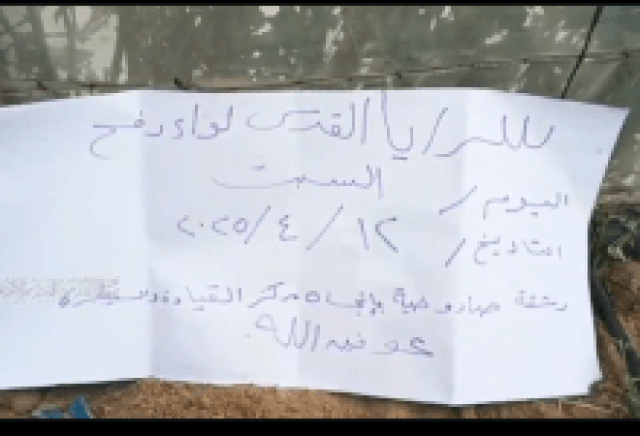 سرايا القدس لواء رفح
اليوم / السبت
التاريخ / ١٢ / ٤ / ٢٠٢٥
رشقة صاروخية بإتجاه مركز القيادة والسيطرة
عوض الله